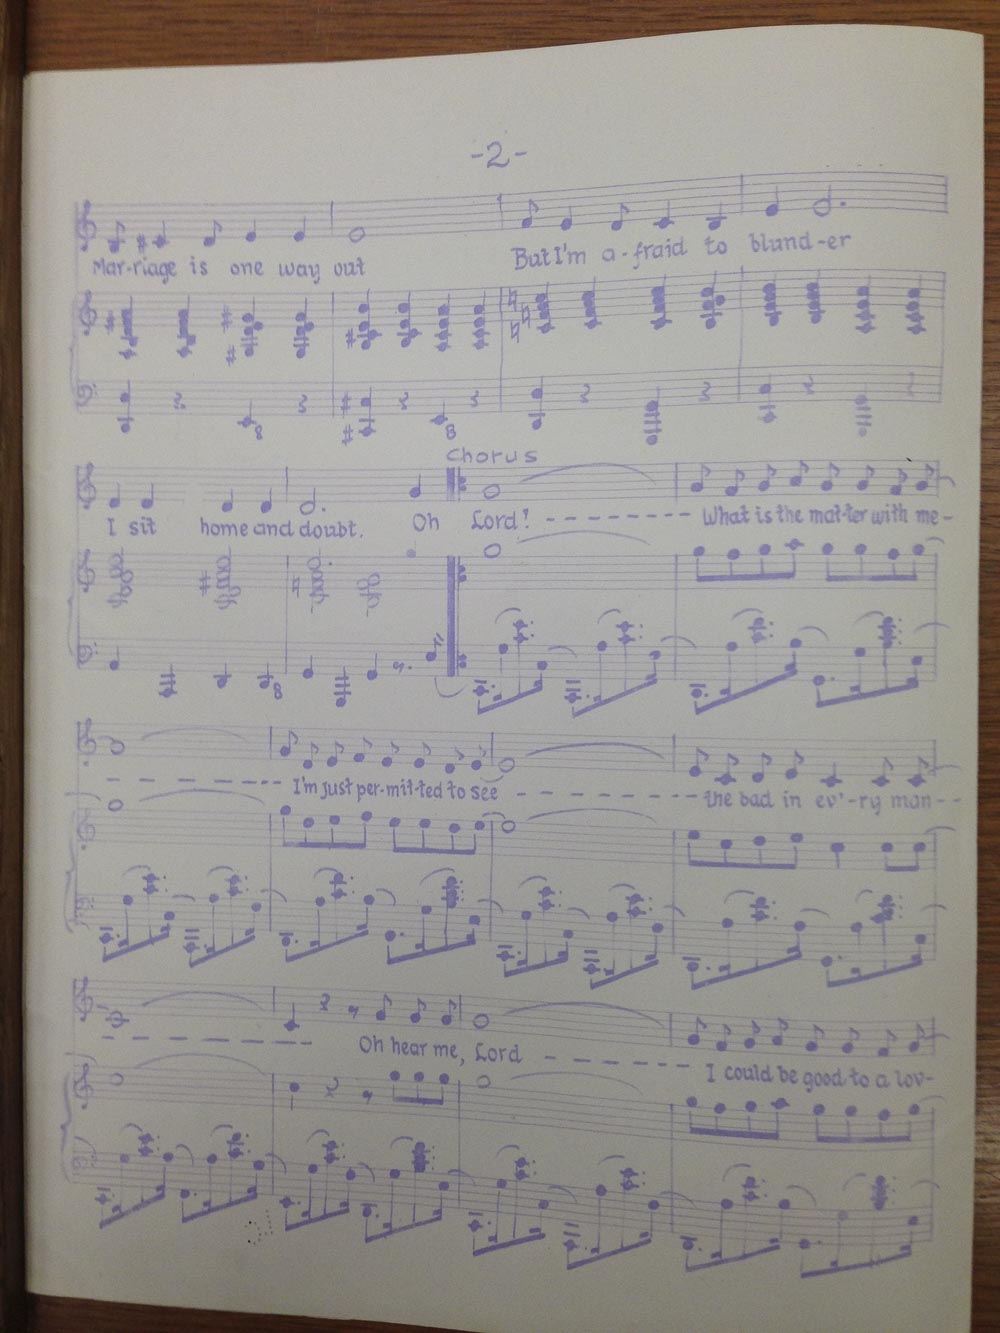 -2-
Mar-riage is one way out But I'm a-fraid to blund-er
8 8
Chorus
I sit home and doubt. Oh Lord! -------- What is the mat-ter with me-
8
- - - - - - - I'm just per-mit-ted to see - - - - - - - - the bad in ev'-ry man--
- - - - - - - Oh hear me, Lord - - - - - - I could be good to a lov-